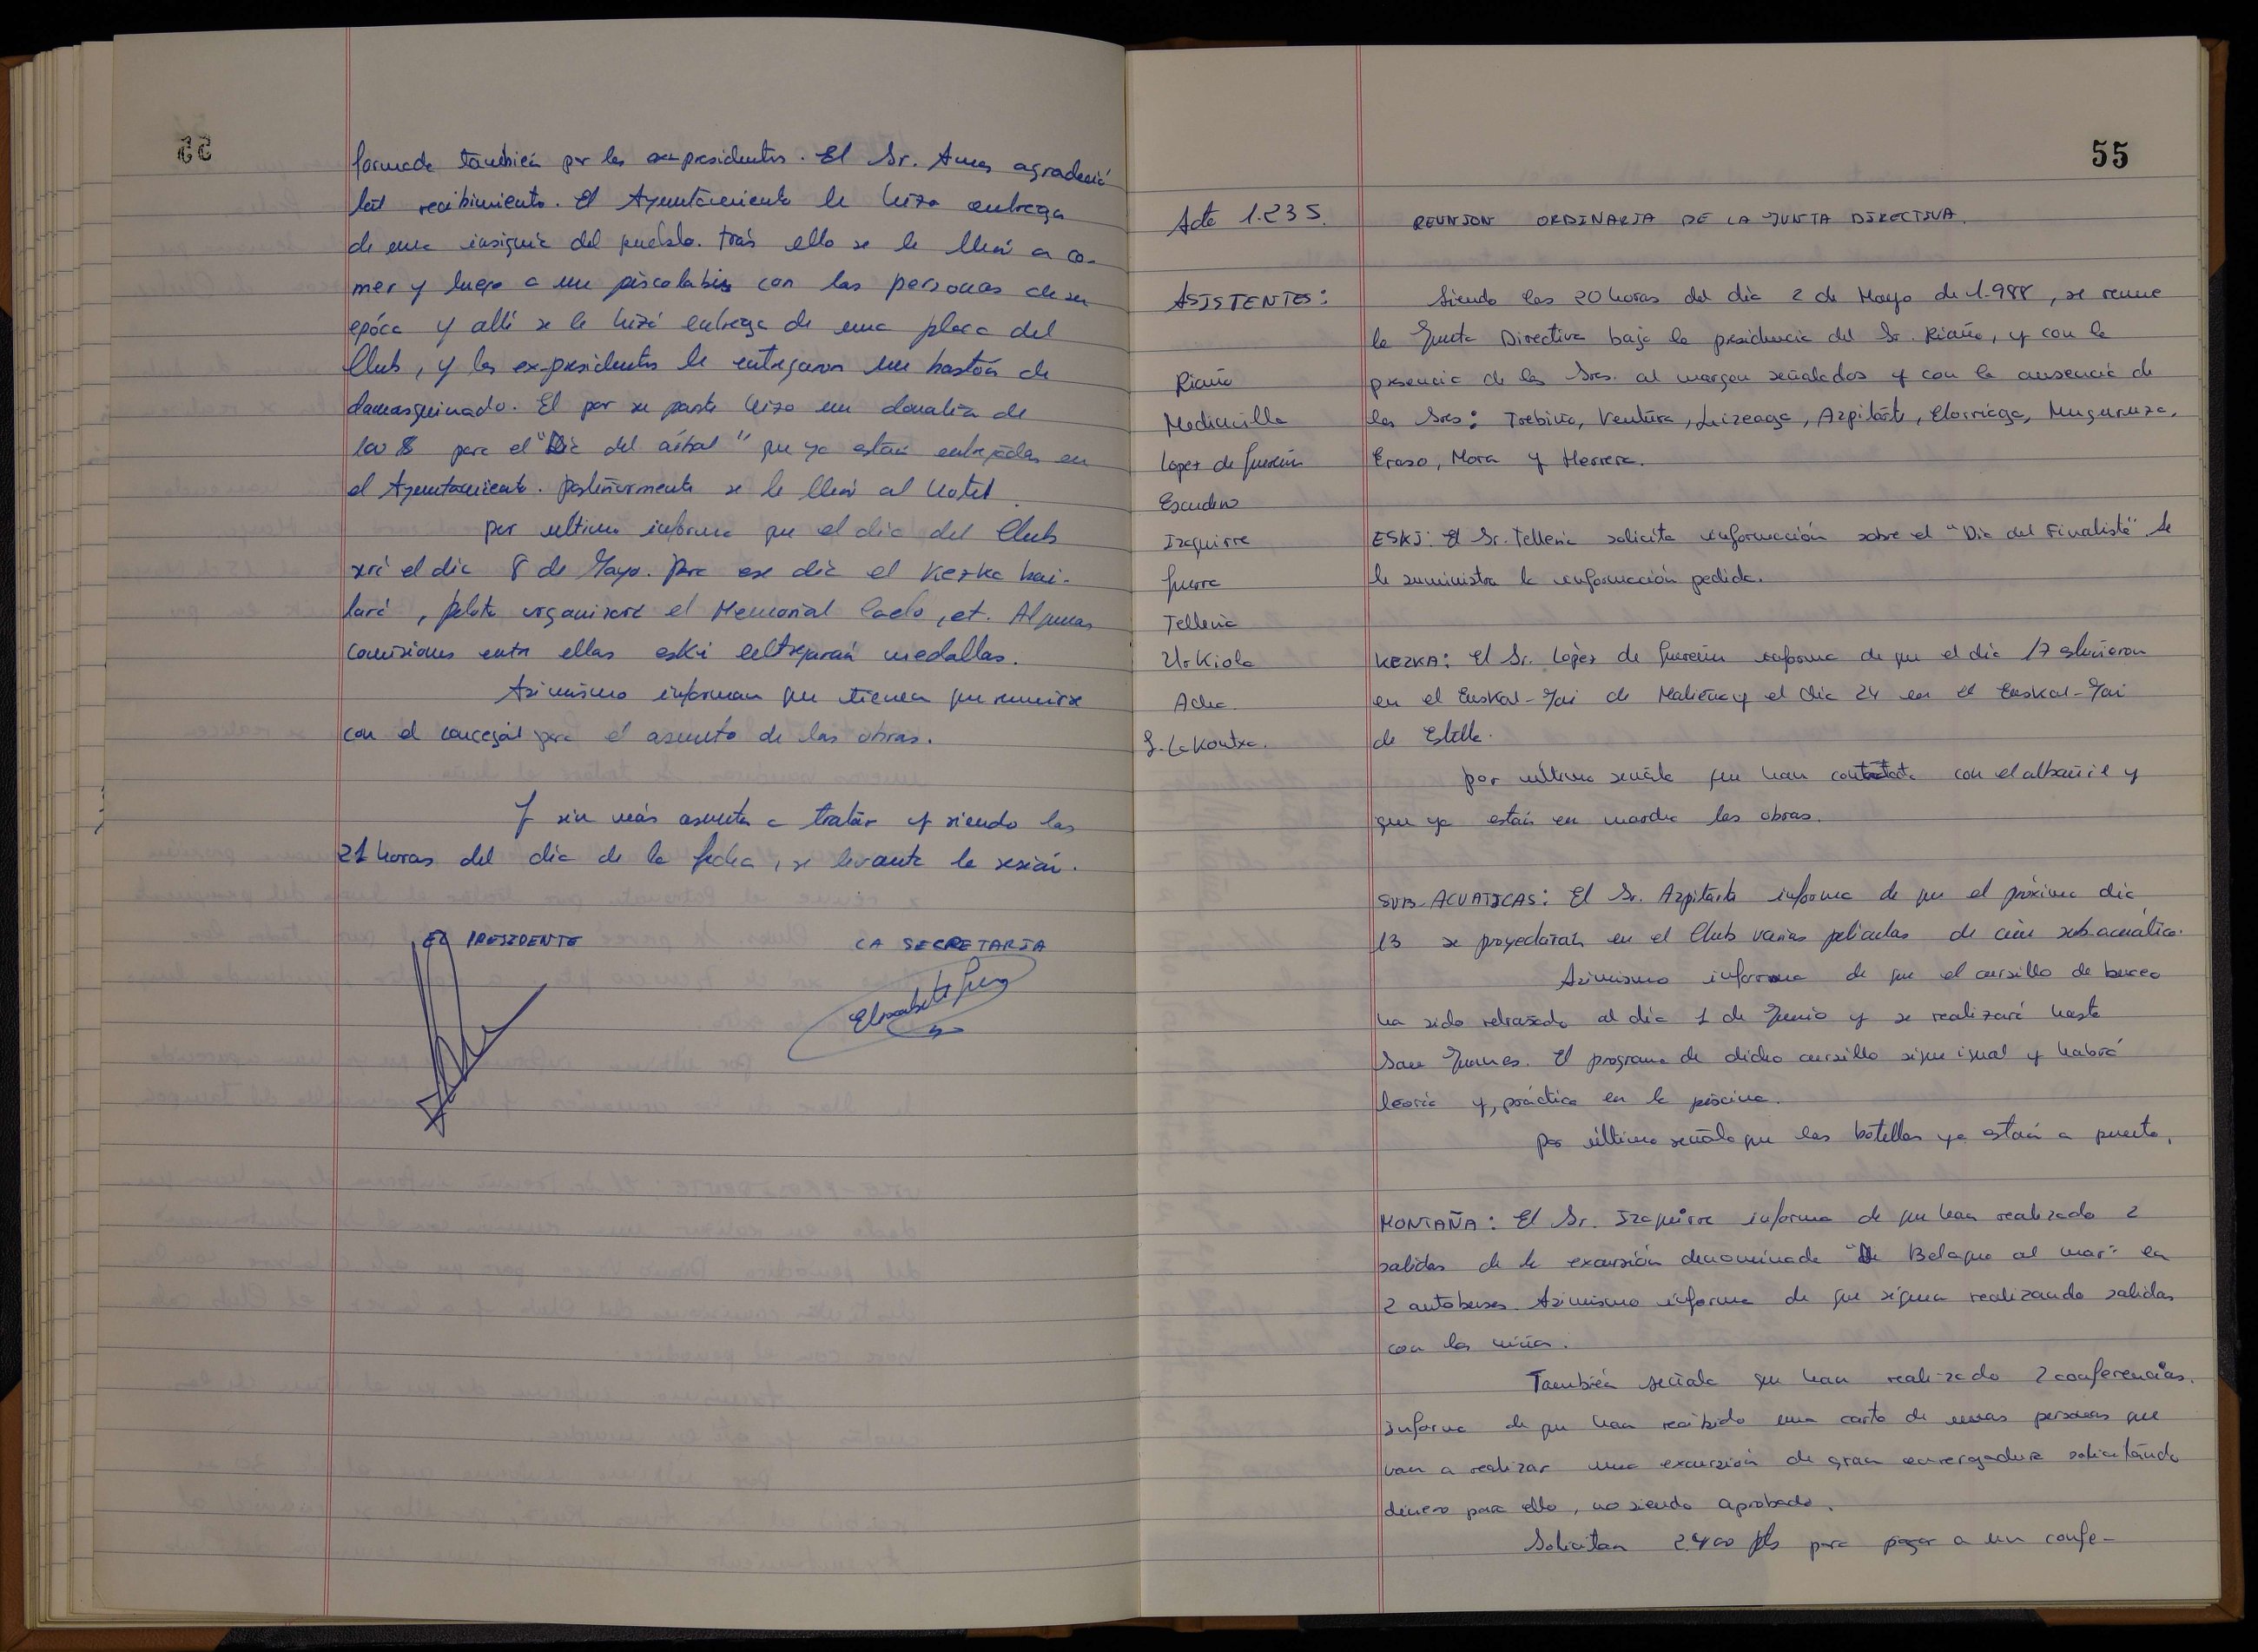 formada también por los expresidentes. El Sr. Amas agradeció
tal recibimiento. El Ayuntamiento le hizo entrega
de una insignia del pueblo. tras ello se le llevó a co-
mer y luego a un piscolabis con las personas de su
epóca y allí se le hizo entrega de una placa del
Club, y los ex-presidentes le entregaron un bastón de
damasquinado. El por su parte hizo un donativo de
100 $ para el "Dia del árbol" que ya están entregadas en
el Ayuntamiento. posteriormente se le llevó al hotel.
por ultimo informa que el dia del Club
será el dia 8 de Mayo. para ese dia el Kezka bai-
lará, pelota organizará el Memorial , et. Algunas
comisiones entre ellas eski entregarán medallas.
Asimismo informan que tienen que reunirse
con el concejal para el asunto de las obras.
Y sin más asuntos a tratar y siendo las
21 horas del dia de la fecha, se levanta la sesión.
EL PRESIDENTE LA SECRETARIA
55
Acta 1.235. REUNION ORDINARIA DE LA JUNTA DIRECTIVA.
ASISTENTES:
Riaño
Medinilla
Lopez de Guereñu
Escudero
Izaguirre
Guerra
Telleria
Urkiola
Acha.
S. Lakontxa.
Siendo las 20 horas del dia 2 de Mayo de 1.988, se reune
la Junta Directiva bajo la presidencia del Sr. Riaño, y con la
presencia de los Sres. al margen señalados y con la ausencia de
los Sres: Trebiño, Ventura, Luizeaga, Azpitarte, Elorriaga, Muguruza,
Eraso, Mora y Herrera.
ESKI: El Sr. Telleria solicita información sobre el "Dia del Finalista". Se
le suministra la información pedida.
KEZKA: El Sr. López de Guereñu informa de que el dia 17 estuvieron
en el Euskal-Jai de y el dia 24 en el Euskal-Jai
de Estella.
por último señala que han contratado con el albañil y
que ya están en marcha las obras.
SUB-ACUATICAS: El Sr. Azpitarte informa de que el próximo dia
13 se proyectarán en el Club varias peliculas de cine sub-acuático.
Asimismo informa de que el cursillo de buceo
ha sido retrasado al dia 1 de Junio y se realizará hasta
San Juanes. El programa de dicho cursillo sigue igual y habrá
teoria y, práctica en la piscina.
por último señala que las botellas ya están a punto.
MONTAÑA: El Sr. Izaguirre informa de que han realizado 2
salidas de la excursión denominada "De Belagua al mar" en
2 autobuses. Asimismo informa de que siguen realizando salidas
con los niños.
También señala que han realizado 2 conferencias.
informa de que han recibido una carta de unas personas que
van a realizar una excursión de gran envergadura solicitando
dinero para ello, no siendo aprobado.
Solicitan 2.400 pts para pagar a un confe-